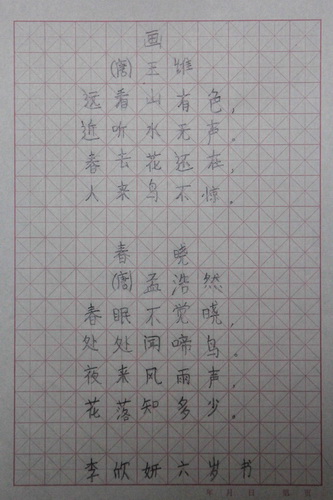 画
(唐)王维
远看山有色，
近听水无声。
春去花还在，
人来鸟不惊。
春晓
(唐)孟浩然
春眠不觉晓，
处处闻啼鸟。
夜来风雨声，
花落知多少。
李欣妍六岁书